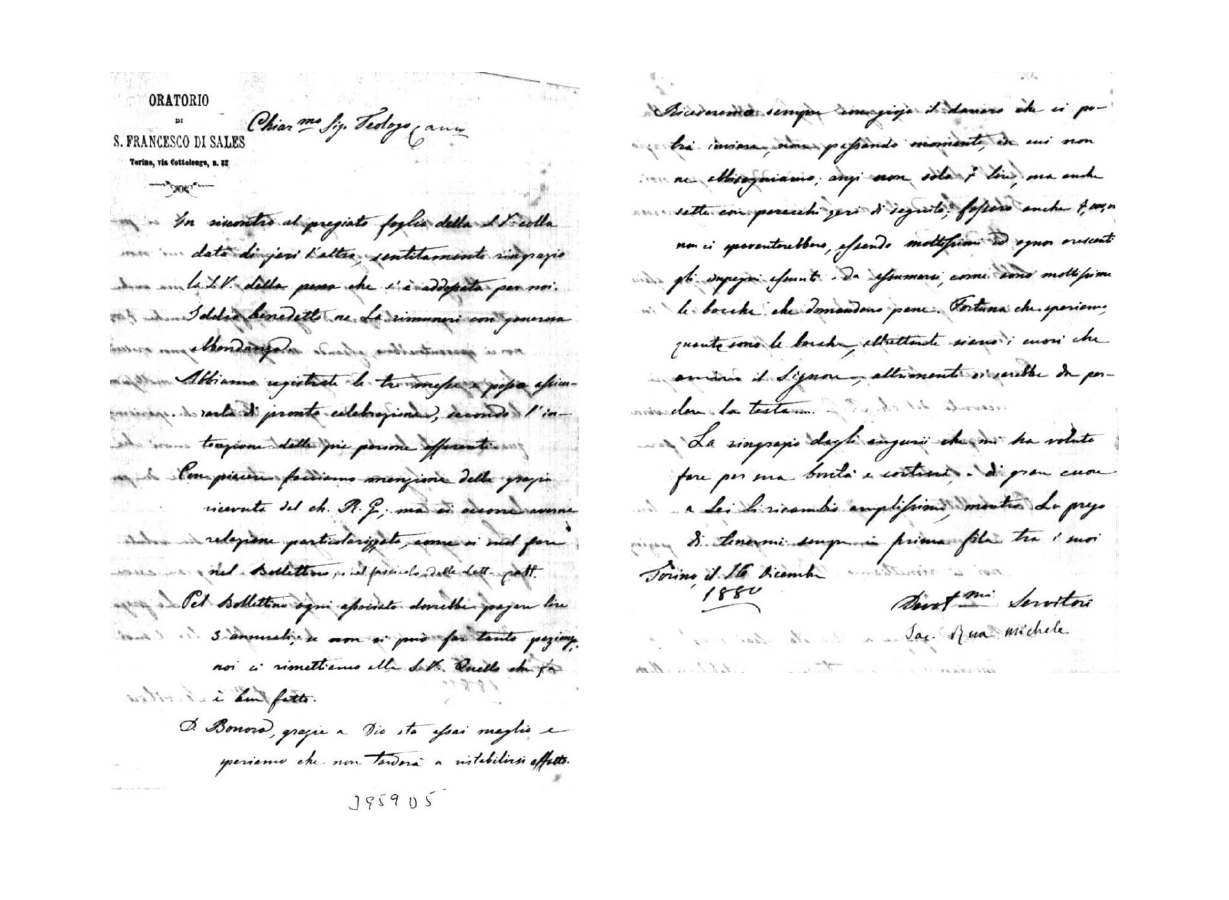 ORATORIO
DI
S. FRANCESCO DI SALES
Torino, via Cottolengo, n. 32
Chiar.mo Sig. Teologo
In riscontro al pregiato foglio della S.V. colla
data di jeri l'altro, sentitamente ringrazio
la S.V. della pena che s'è addossata per noi.
Iddio benedetto ne La rimuneri con generosa
abbondanza.
Abbiamo registrate le tre messe e posso assicu-
rarla di pronta celebrazione, secondo l'in-
tenzione delle pie persone offerenti.
Con piacere facciamo menzione della grazia
ricevuta dal ch. R. G., ma ci occorre averne
relazione particolarizzata, come si suol fare
nel Bollettino, o nel fascicolo delle Lett. Catt.
Pel Bollettino ogni associato dovrebbe pagare lire
3 annuali; se non si può far tanto
noi ci rimettiamo alla S.V. Quello che fa
è ben fatto.
D. Bonora, grazie a Dio sta assai meglio e
speriamo che non tarderà a ristabilirsi affatto.
J95905
Riceveremo sempre con gioja il danaro che ci po-
trà inviare, non passando momenti, in cui non
ne abbisogniamo; anzi non solo 7 lire, ma anche
sette con parecchi zeri di seguito; fossero anche
non ci spaventerebbero, essendo moltissimi ed ognor crescenti
gli impegni assunti e da assumersi, come sono moltissime
le bocche che domandano pane. Fortuna che speriamo,
quante sono le bocche, altrettanti siano i cuori che
amano il Signore, altrimenti vi sarebbe da per-
dere la testa....
La ringrazio degli augurii che mi ha voluto
fare per sua bontà e cortesia, e di gran cuore
a Lei li ricambio amplissimi, mentre La prego
di tenermi sempre in prima fila tra i suoi
Torino, il 16 Dicembre
1880
Devot.mi Servitori
Sac. Rua Michele